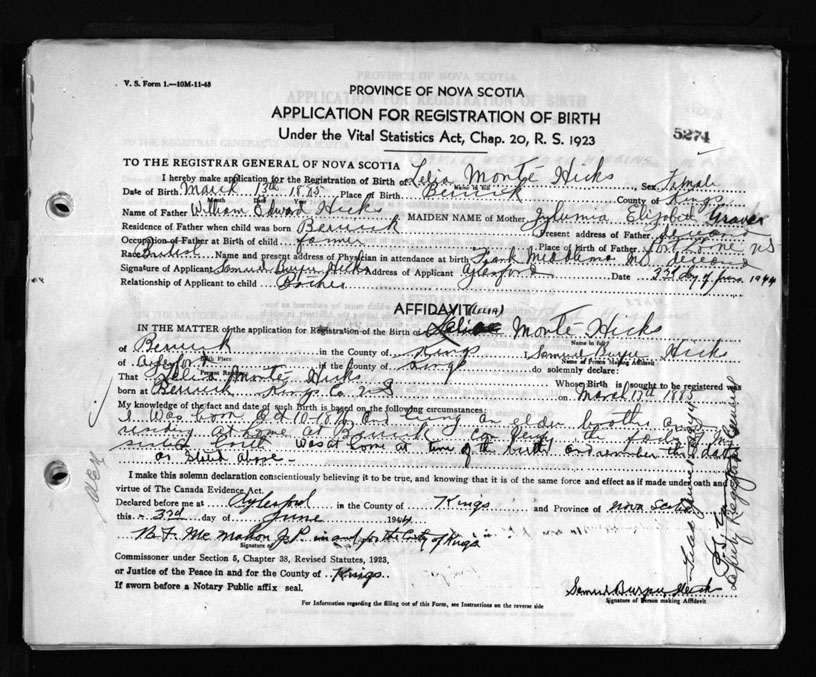 V. S. Form 1.—10M-11-43
PROVINCE OF NOVA SCOTIA
APPLICATION FOR REGISTRATION OF BIRTH
Under the Vital Statistics Act, Chap. 20, R. S. 1923
5274
TO THE REGISTRAR GENERAL OF NOVA SCOTIA
I hereby make application for the Registration of Birth of Lelia Monté Hicks Sex Female
Date of Birth March 13th 1885 Place of Birth Berwick County of Kings
Name of Father William Edward Hicks MAIDEN NAME of Mother Elizabeth Graves
Residence of Father when child was born Berwick Present address of Father deceased
Occupation of Father at Birth of child farmer Place of birth of Father NS
Race British Name and present address of Physician in attendance at birth Frank Middlemas MD. deceased
Signature of Applicant Samuel Burpee Hicks Address of Applicant Aylesford Date 3rd day of June 1944
Relationship of Applicant to child Brother
AFFIDAVIT (LELIA)
IN THE MATTER of the application for Registration of the Birth of Monté Hicks
Name in full
of Berwick in the County of Kings I, Samuel Burpee Hicks
Birth Place Name of Person Making Affidavit
of Aylesford in the County of Kings do solemnly declare:
Present Residence
That Lelia Monté Hicks Whose Birth is sought to be registered was
born at Berwick Kings Co NS on March 13th 1885
My knowledge of the fact and date of such Birth is based on the following circumstances:
I was born Oct 10-1876 and being an elder brother and
residing at home at Berwick
was at home at time of the birth and remember the date
as stated above —
I make this solemn declaration conscientiously believing it to be true, and knowing that it is of the same force and effect as if made under oath and by
virtue of The Canada Evidence Act.
Declared before me at Aylesford in the County of Kings and Province of Nova Scotia
this 3rd day of June 1944
B. F. McMahon J.P. in and for the County of Kings
Signature
Commissioner under Section 5, Chapter 38, Revised Statutes, 1923,
or Justice of the Peace in and for the County of Kings
If sworn before a Notary Public affix seal.
Samuel Burpee Hicks
Signature of Person making Affidavit
For Information regarding the filling out of this Form, see Instructions on the reverse side
Deputy Registrar General